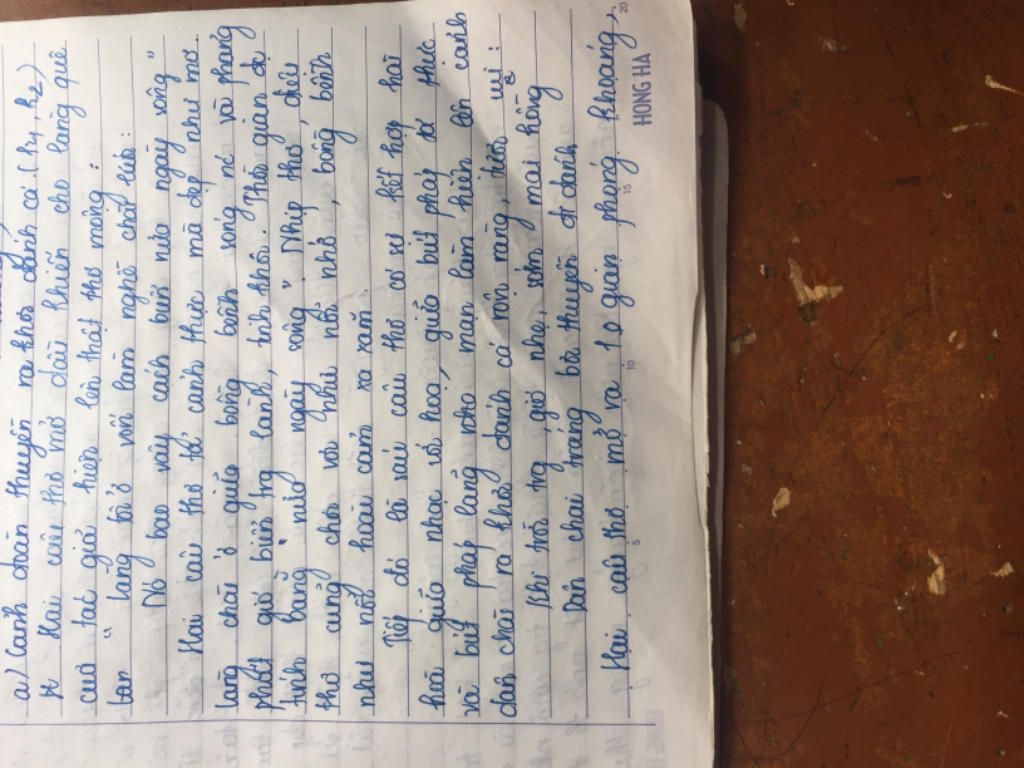 a) Cảnh đoàn thuyền ra khơi đánh cá (k1, k2)
* Hai câu thơ mở đầu khiến cho làng quê
của tác giả hiện lên thật thơ mộng:
" Làng tôi ở vốn làm nghề chài lưới:
Nc bao vây cách biển nửa ngày sông"
Hai câu thơ tả cảnh thực mà đẹp như mơ
làng chài ở giữa bồng bềnh sóng nc và phảng
phất gió biển trg lành, tinh khôi. Thời gian đc
tính bằng " nửa ngày sông". Nhịp thơ, điệu
thơ cũng cho vời nhẹ nhỏ, bồng bềnh
như một hoài cảm xa xăm
Tiếp đó là sáu câu thơ có sự kết hợp hài
hoà giữa nhạc và hoạ, giữa bút pháp tả thực
và bút pháp lãng mạn làm hiện lên cảnh
dân chài ra khơi đánh cá rộn ràng,
Khi trời trg, gió nhẹ, sớm mai hồng
Dân chai tráng bơi thuyền đi đánh cá
Hai câu thơ mở ra 1 ko gian phóng khoáng,
HONG HA
5 10 15 20